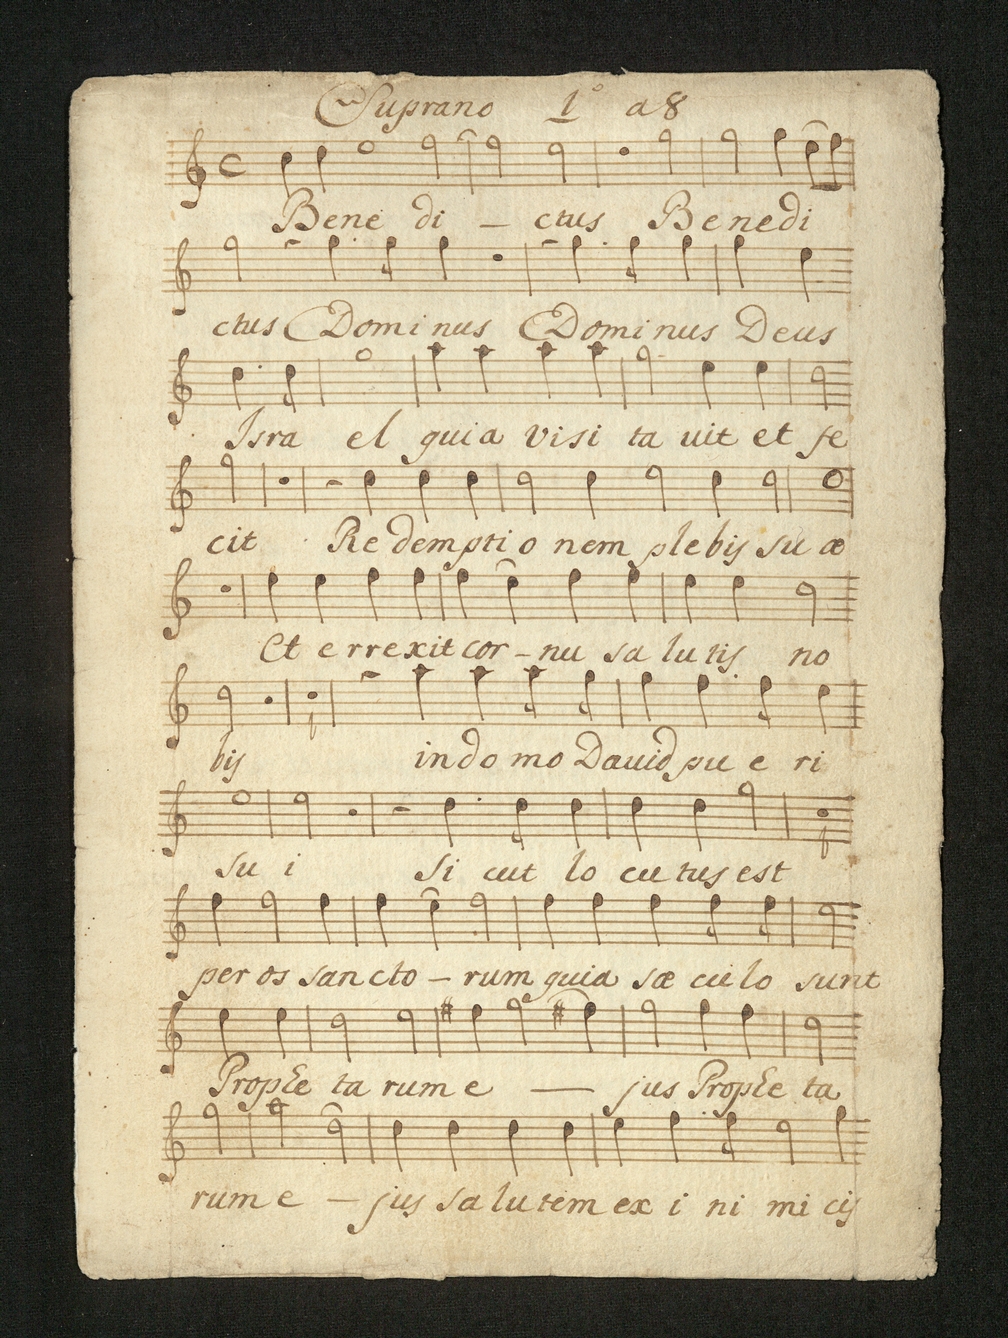 Suprano 1º a 8
Bene di - ctus Benedi
ctus Dominus Dominus Deus
Isra el quia visi ta uit et fe
cit Redemptio nem plebis su æ
Et e rrexit cor - nu sa lu tis no
bis in do mo Dauid pu e ri
su i Si cut lo cu tus est
per os san cto - rum quia sæ cu lo sunt
Prophe ta rum e - jus Prophe ta
rum e - jus sa lu tem ex i ni mi cis